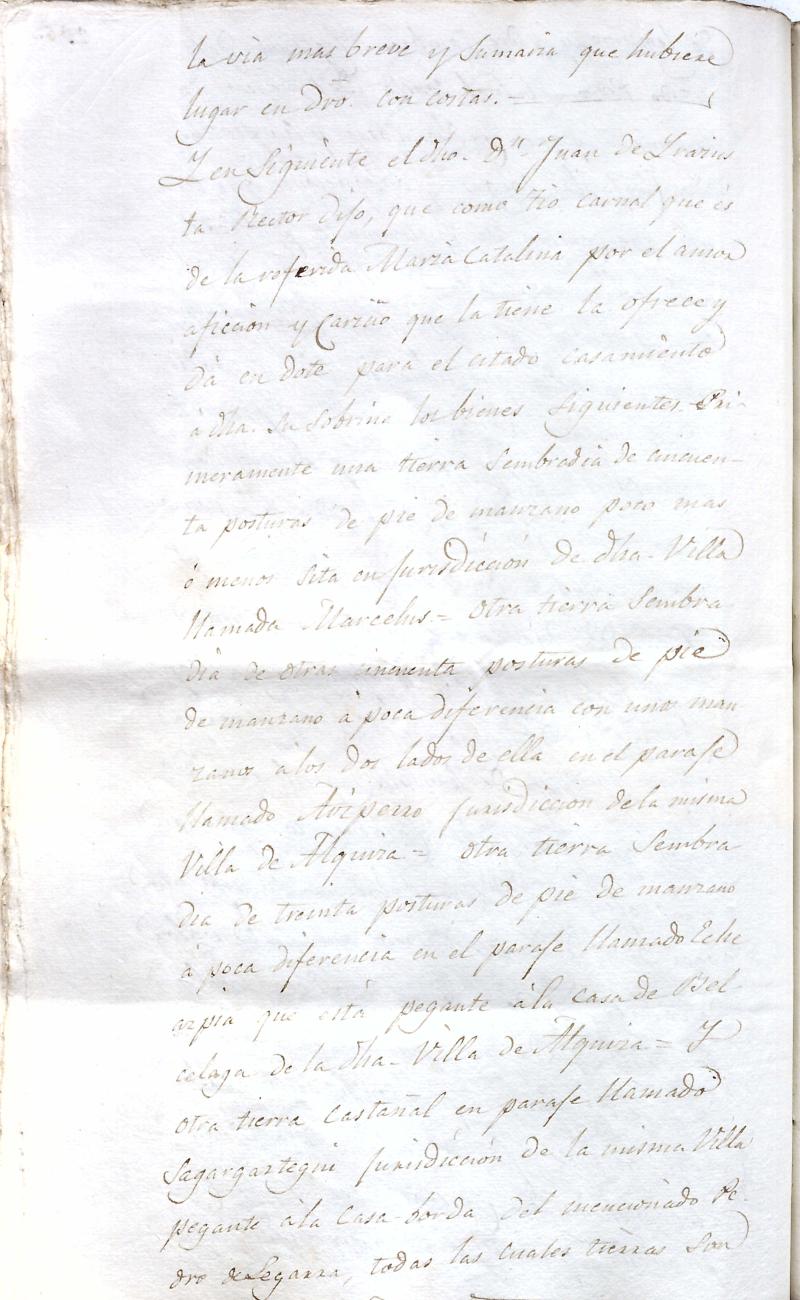 la via mas breve y Sumaria que hubiere
lugar en Dro. con costas. =
Y en Siguiente el dho. Dn. Juan de Yrazus
ta Rector dijo, que como tio carnal que és
de la referida Maria Catalina por el amor
aficion y Cariño que la tiene la ofrece y
dá en dote para el citado casamiento
à dha. su sobrina los bienes siguientes. Pri-
meramente una tierra Sembradia de cincuen-
ta posturas de pie de manzano poco mas
ò menos sita en Jurisdiccion de dha. Villa
llamada Marcelus = otra tierra Sembra
dia de otras cincuenta posturas de pie
de manzano à poca diferencia con unos man
zanos à los dos lados de ella en el paraje
llamado Jurisdiccion de la misma
Villa de Alquiza = otra tierra Sembra
dia de treinta posturas de pie de manzano
à poca diferencia en el paraje llamado Eche
azpia que está pegante à la Casa de Bel
celaga de la dha. Villa de Alquiza = Y
otra tierra Castañal en paraje llamado
Sagargaztegui Jurisdiccion de la misma Villa
pegante à la Casa-borda del mencionado Pe-
dro de Legarra, todas las cuales tierras son